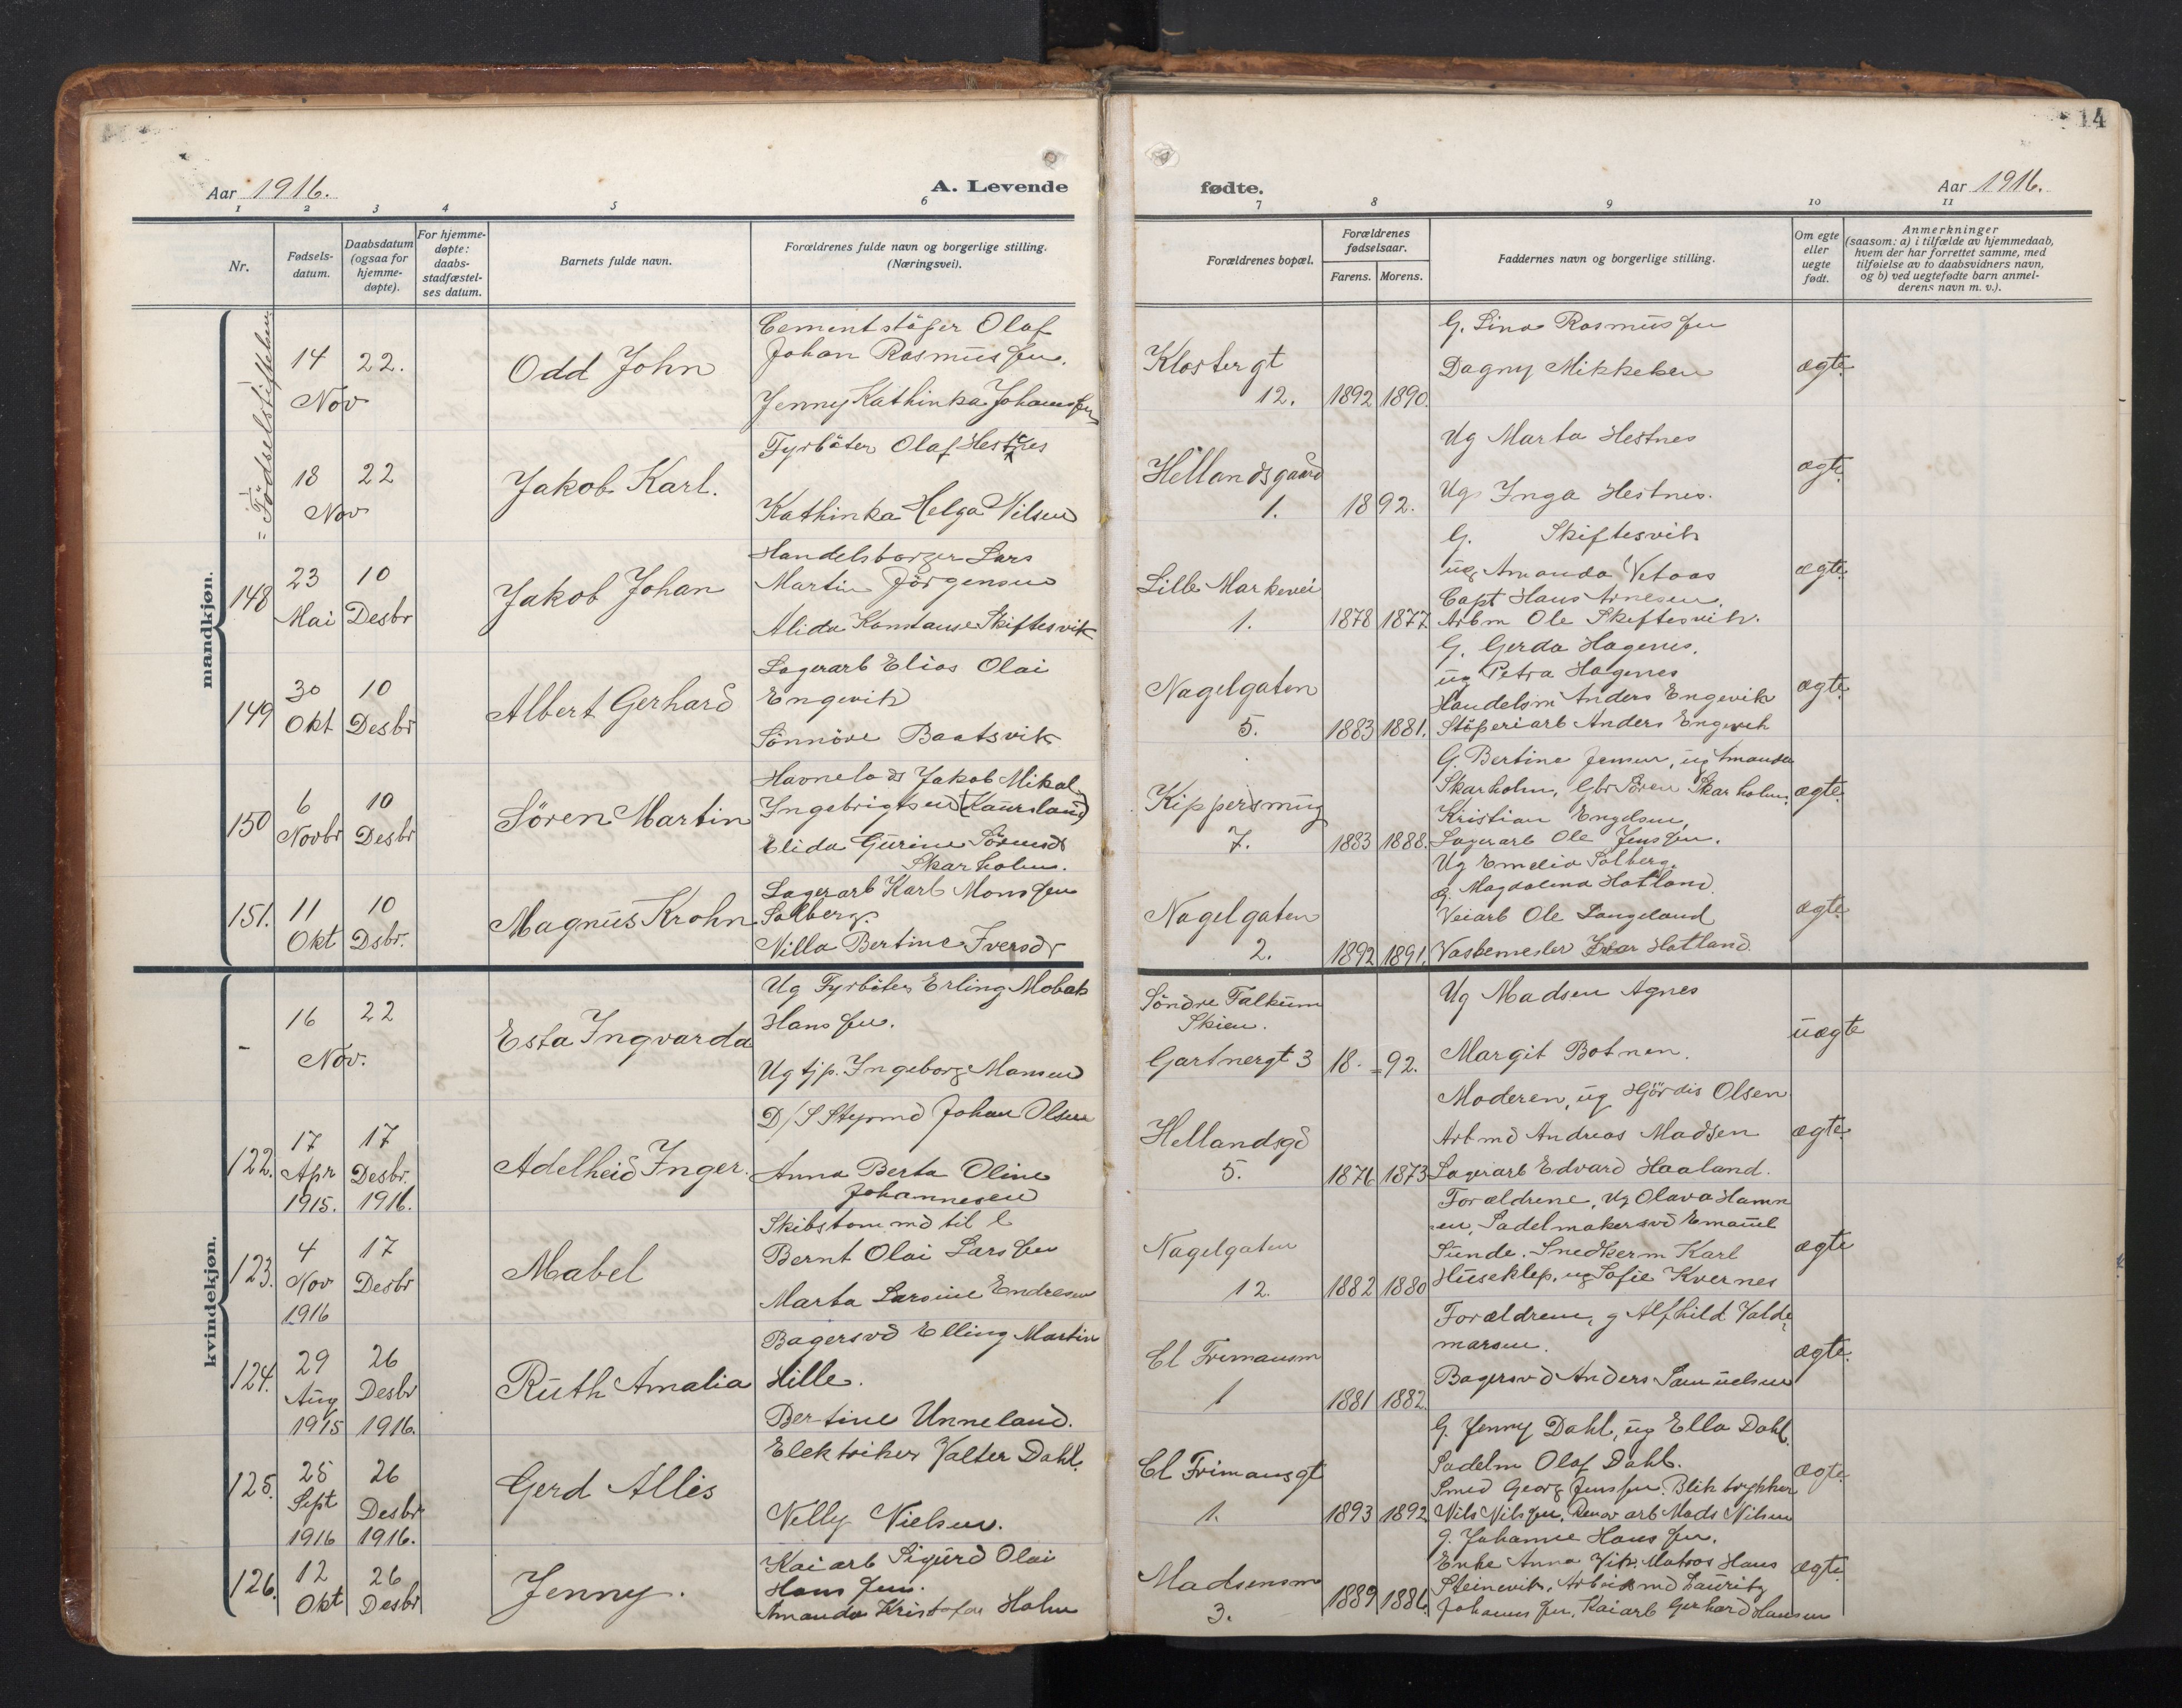 14
Aar 1916.
A. Levende
fødte.
Aar 1916.
1 2 3 4 5 6 7 8 9 10 11
Nr.
Fødsels-
datum.
Daabsdatum
(ogsaa for
hjemme-
døpte).
For hjemme-
døpte:
daabs-
stadfæstel-
ses datum.
Barnets fulde navn.
Forældrenes fulde navn og borgerlige stilling.
(Næringsvei).
Forældrenes bopæl.
Forældrenes
fødselsaar.
Farens. Morens.
Faddernes navn og borgerlige stilling.
Om egte
eller
uegte
født.
Anmerkninger
(saasom: a) i tilfælde av hjemmedaab,
hvem der har forrettet samme, med
tilføielse av to daabsvidners navn,
og b) ved uegtefødte barn anmel-
derens navn m. v.).
mandkjøn.
= Födselstiftelsen
14 22.
Nov
Odd John
Cementstöper Olaf
Johan Rasmussen.
Jenny Kathinka Johannsen
Klostergt
12.
1892 1890.
G. Lina Rasmussen
Dagny Mikkelsen
ægte.
18 22
Nov
Jakob Karl.
Fyrböter Olaf Hestnes
Kathinka Helga Nilsen
Hellandsgaard
1.
1892.
Ug Marta Hestnes
Ug Inga Hestnes.
ægte.
148
23 10
Mai Desbr
Jakob Johan
Handelsborger Lars
Martin Jörgensen
Alida Konstanse Skiftesvik
Lille Markevei
1.
1878 1877
G. Skiftesvik
ug Amanda Vetaas
Capt Hans Arnesen.
Arbm Ole Skiftesvik.
ægte.
149
30 10
Okt Desbr
Albert Gerhard
Lagerarb Elias Olai
Engevik
Sönnöve Baatsvik
Nagelgaten
5.
1883 1881.
G. Gerda Hagenes.
ug Petra Hagenes
Handelsm Anders Engevik
Stöperiarb Anders Engevik
ægte.
150
6 10
Novbr Desbr
Søren Martin
Havnelods Jakob Mikal
Ingebrigtsen (Kausland)
Elida Gurine Sörensdt
Skarholm.
Kippersmug
7.
1883 1888.
G. Bertine Jensen, ug Amanda
Skarholm, Gbr Sören Skarholm,
Kristian Engelsen,
Lagerarb Ole Jenssen.
ægte.
151.
11 10
Okt Dsbr.
Magnus Krohn
Lagerarb Karl Monssen
Solberg.
Nilla Bertine Iversdr
Nagelgaten
2.
1892 1891.
Ug Emelia Solberg.
G. Magdalena Hatland.
Veiarb Ole Langeland
Vaskemester Ivar Hatland
ægte.
kvindekjøn.
-
16 22
Nov.
Esta Ingvarda
Ug Fyrböter Erling Mobak
Hanssen.
Ug tjp. Ingeborg Monsen
Söndre Falkum
Skien.
Gartnergt 3
18. =92.
Ug Madsen Agnes
Margit Botnen.
uægte
122.
17 17
Apr Desbr.
1915. 1916.
Adelheid Inger.
D/S Styrmd Johan Olsen
Anna Berta Oline
Johannesen
Hellandsgd
5.
1876 1873
Moderen, ug Hjördis Olsen
Arbmd Andreas Madsen
Lagerarb Edvard Haaland.
ægte.
123.
4 17
Nov Desbr
1916
Mabel
Skibstømmd til l
Bernt Olai Larssen
Marta Larsine Endresen
Nagelgaten
12.
1882 1880
Forældrene, Ug Olava Hamn
en, Sadelmakersvd Emanuel
Sunde. Snedkerm Karl
Huseklep, ug Sofie Kvernes
ægte
124.
29 26
Aug Desbr
1915 1916.
Ruth Amalia
Bagersvd Elling Martin
Hille.
Bertine Unneland.
Cl Frimansm
1
1881 1882.
Forældrene, g Alfhild Valde
marsen.
Bagersvd Anders Samuelsen
ægte.
125.
25 26
Sept Desbr
1916 1916.
Gerd Allis
Elektriker Valter Dahl.
Nelly Nielsen.
Cl Frimansgt
1.
1893 1892
G. Jenny Dahl, ug Ella Dahl.
Sadelm Olaf Dahl.
Smed Georg Jenssen. Bliktrykker
Nils Nilssen, Renov arb Mads Nilsen
ægte.
126.
12 26
Okt Desbr
Jenny.
Kaiarb Sigurd Olai
Hanssen.
Amanda Kristofa Holm
Madsensm
3.
1889 1886.
g. Johanne Hanssen.
Enke Anna Vik. Matros Hans
Steinevik, Arbeidsmd Lauritz
Johannssen, Kaiarb Gerhard Hansen
ægte.